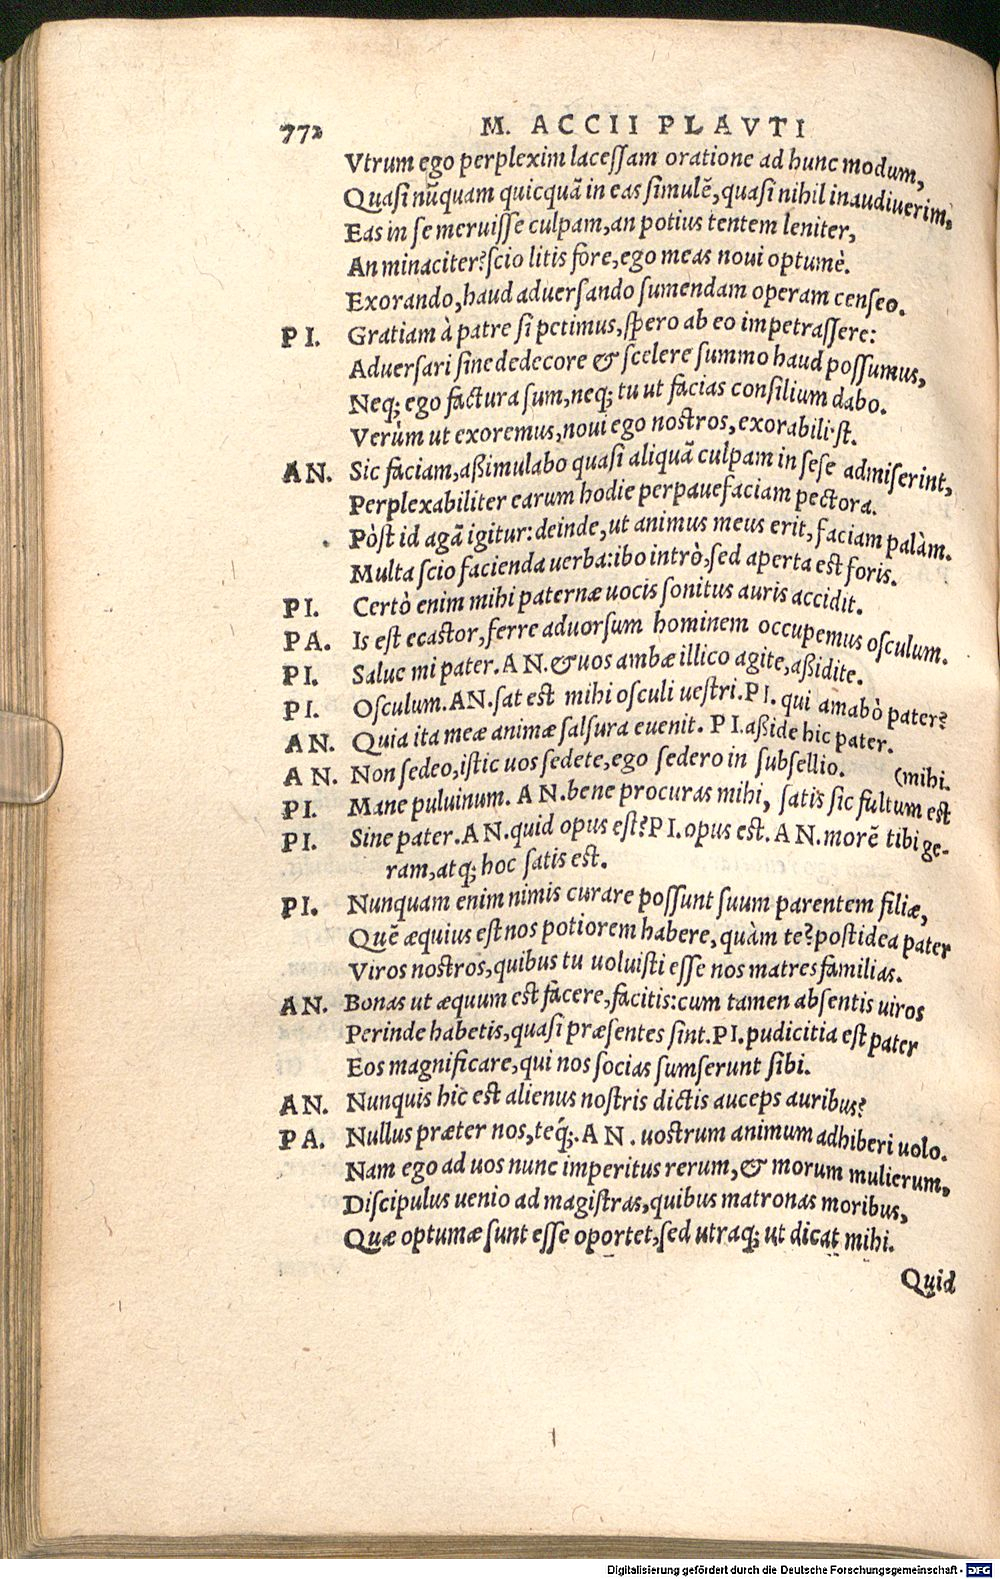 772 M. ACCII PLAVTI
Vtrum ego perplexim lacessam oratione ad hunc modum,
Quasi nũquam quicquã in eas simulẽ, quasi nihil inaudiuerim,
Eas in se meruisse culpam, an potius tentem leniter,
An minaciter? scio litis fore, ego meas noui optumè.
Exorando, haud aduersando sumendam operam censeo.
PI. Gratiam à patre si petimus, spero ab eo impetrassere:
Aduersari sine dedecore & scelere summo haud possumus,
Neq; ego factura sum, neq; tu ut facias consilium dabo.
Verùm ut exoremus, noui ego nostros, exorabili·st.
AN. Sic faciam, aßimulabo quasi aliquã culpam in sese admiserint,
Perplexabiliter earum hodie perpauefaciam pectora.
Pòst id agã igitur: deinde, ut animus meus erit, faciam palàm.
Multa scio facienda uerba: ibo intrò, sed aperta est foris.
PI. Certò enim mihi paternæ uocis sonitus auris accidit.
PA. Is est ecastor, ferre aduorsum hominem occupemus osculum.
PI. Salue mi pater. AN. & uos ambæ illico agite, aßidite.
PI. Osculum. AN. sat est mihi osculi uestri. PI. qui amabò pater?
AN. Quia ita meæ animæ salsura euenit. PI. aßide hic pater.
AN. Non sedeo, istic uos sedete, ego sedero in subsellio. (mihi.
PI. Mane puluinum. AN. bene procuras mihi, satis sic fultum est
PI. Sine pater. AN. quid opus est? PI. opus est. AN. morẽ tibi ge-
ram, atq; hoc satis est.
PI. Nunquam enim nimis curare possunt suum parentem filiæ,
Quẽ æquius est nos potiorem habere, quàm te? postidea pater
Viros nostros, quibus tu uoluisti esse nos matresfamilias.
AN. Bonas ut æquum est facere, facitis: cum tamen absentis uiros
Perinde habetis, quasi præsentes sint. PI. pudicitia est pater
Eos magnificare, qui nos socias sumserunt sibi.
AN. Nunquis hic est alienus nostris dictis auceps auribus?
PA. Nullus præter nos, teq́;. AN. uostrum animum adhiberi uolo.
Nam ego ad uos nunc imperitus rerum, & morum mulierum,
Discipulus uenio ad magistras, quibus matronas moribus,
Quæ optumæ sunt esse oportet, sed utraq; ut dicat mihi.
Quid
Digitalisierung gefördert durch die Deutsche Forschungsgemeinschaft - DFG